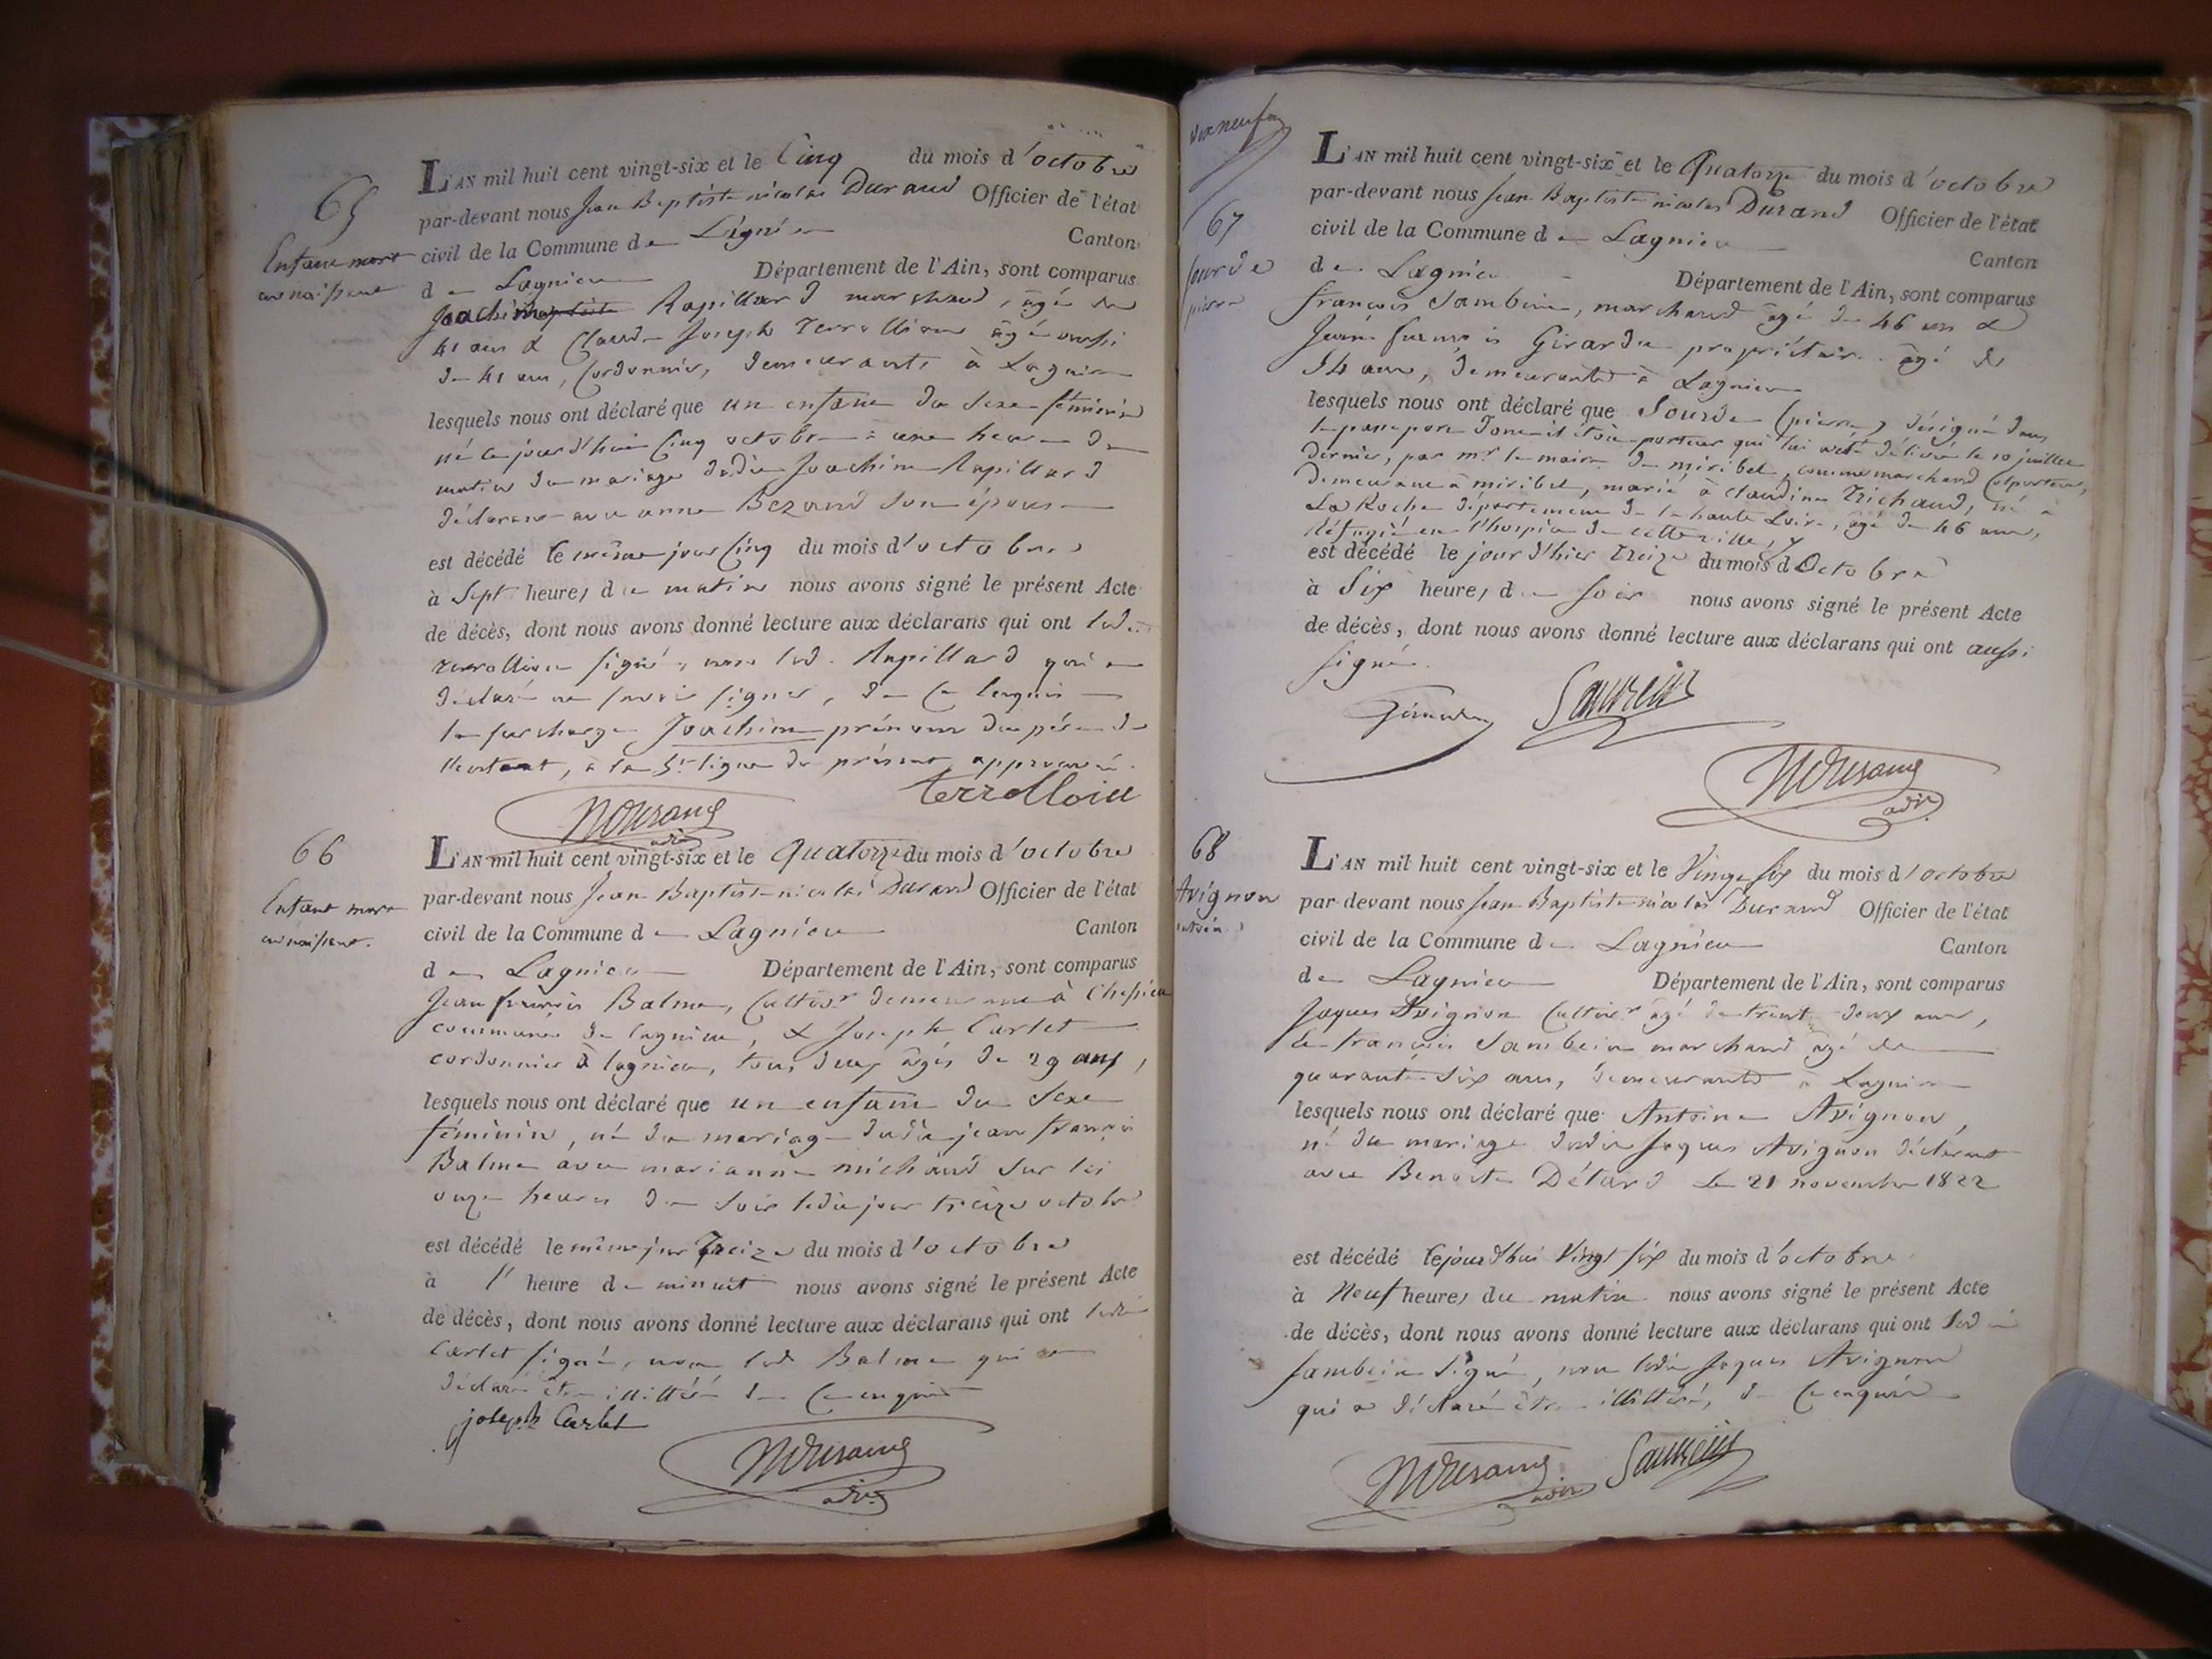 65
Enfant mort
en naissant
L'AN mil huit cent vingt-six et le Cinq du mois d'octobre
par-devant nous Jean Baptiste nicolas Durand Officier de l'état
civil de la Commune de Lagnieu Canton
de Lagnieu Département de l'Ain, sont comparus
Joachim Rapillard marchand, âgé de
41 ans & Claude Joseph Terrollion âgé aussi
de 41 ans, Cordonnier, demeurants à Lagnieu
lesquels nous ont déclaré que un enfant du sexe féminin
né ce jourd'hui Cinq octobre à une heure du
matin du mariage dudit Joachim Rapillard
déclarant avec anne Bezand son épouse
est décédé le même jour Cinq du mois d'octobre
à Sept heures du matin nous avons signé le présent Acte
de décès, dont nous avons donné lecture aux déclarans qui ont led.
signé, non led. Rapillard qui a
déclaré ne savoir signer, de ce enquis
la surcharge Joachim prénom du père de
l'enfant, à la 5e ligne du présent approuvée.
NDurand
adj.
66
Enfant mort
en naissant.
L'AN mil huit cent vingt-six et le Quatorze du mois d'octobre
par-devant nous Jean Baptiste nicolas Durand Officier de l'état
civil de la Commune de Lagnieu Canton
de Lagnieu Département de l'Ain, sont comparus
Jean francois Balme, Cultivr demeurant à
commune de lagnieu, & Joseph Carlet
cordonnier à lagnieu, tous deux âgés de 29 ans,
lesquels nous ont déclaré que un enfant du sexe
féminin, né du mariage dudit jean francois
Balme avec marianne michaud sur les
onze heures du soir ledit jour treize octobre
est décédé le même jour Treize du mois d'octobre
à l' heure de minuit nous avons signé le présent Acte
de décès, dont nous avons donné lecture aux déclarans qui ont ledit
Carlet signé, non led. Balme qui a
déclaré être illittéré de ce enquis
joseph Carlet
NDurand
adj.
67
Sourde
pierre
L'AN mil huit cent vingt-six et le Quatorze du mois d'octobre
par-devant nous Jean Baptiste nicolas Durand Officier de l'état
civil de la Commune de Lagnieu Canton
de Lagnieu Département de l'Ain, sont comparus
francois Sambein, marchand âgé de 46 ans &
francois Girardu propriétaire âgé de
54 ans, demeurants à Lagnieu
lesquels nous ont déclaré que Sourde (pierre) désigné dans
le passeport dont il était porteur qui lui a été délivré le 10 juillet
dernier, par mr le maire de miribel, comme marchand Colporteur,
demeurant à miribel, marié à claudine Trichaud, né à
La Roche département de la haute Loire, âgé de 46 ans,
réfugié en l'hospice de cette ville,
est décédé le jour d'hier treize du mois d'Octobre
à Six heures du soir nous avons signé le présent Acte
de décès, dont nous avons donné lecture aux déclarans qui ont aussi
signé.
NDurand
adj.
68
Avignon
antoine
L'AN mil huit cent vingt-six et le Vingt six du mois d'octobre
par-devant nous Jean Baptiste nicolas Durand Officier de l'état
civil de la Commune de Lagnieu Canton
de Lagnieu Département de l'Ain, sont comparus
Jaques Avignon Cultivr âgé de trente deux ans,
& francois Sambein marchand âgé de
quarante six ans, demeurants à Lagnieu
lesquels nous ont déclaré que Antoine Avignon,
né du mariage dudit Jaques Avignon déclarant
avec Benoite Détard le 21 novembre 1822
est décédé cejourd'hui Vingt six du mois d'octobre
à Neuf heures du matin nous avons signé le présent Acte
de décès, dont nous avons donné lecture aux déclarans qui ont led.
Sambein signé, non ledit Jaques Avignon
qui a déclaré être illittéré, de ce enquis
NDurand
adj.